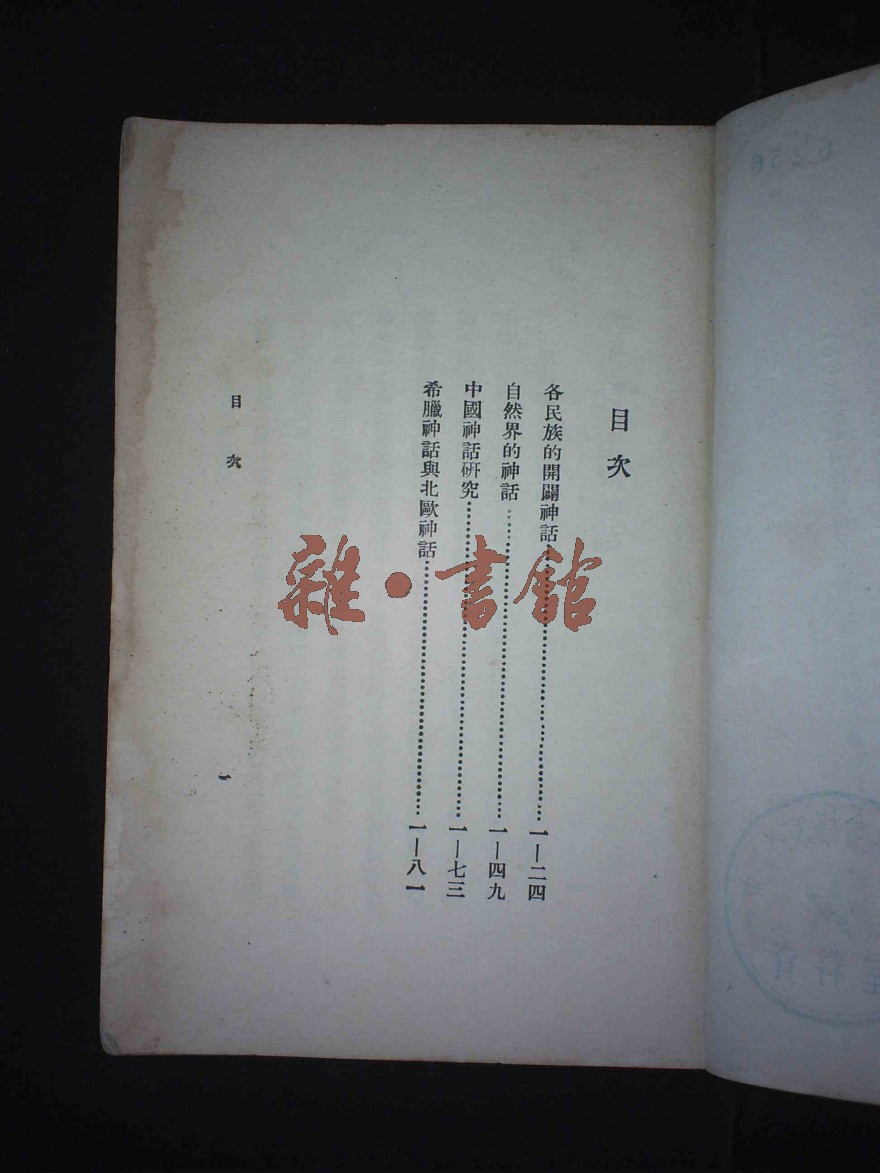 目次
各民族的開闢神話……一—二四
自然界的神話……一—四九
中國神話研究……一—七三
希臘神話與北歐神話……一—八一
目次
一
雜·書館